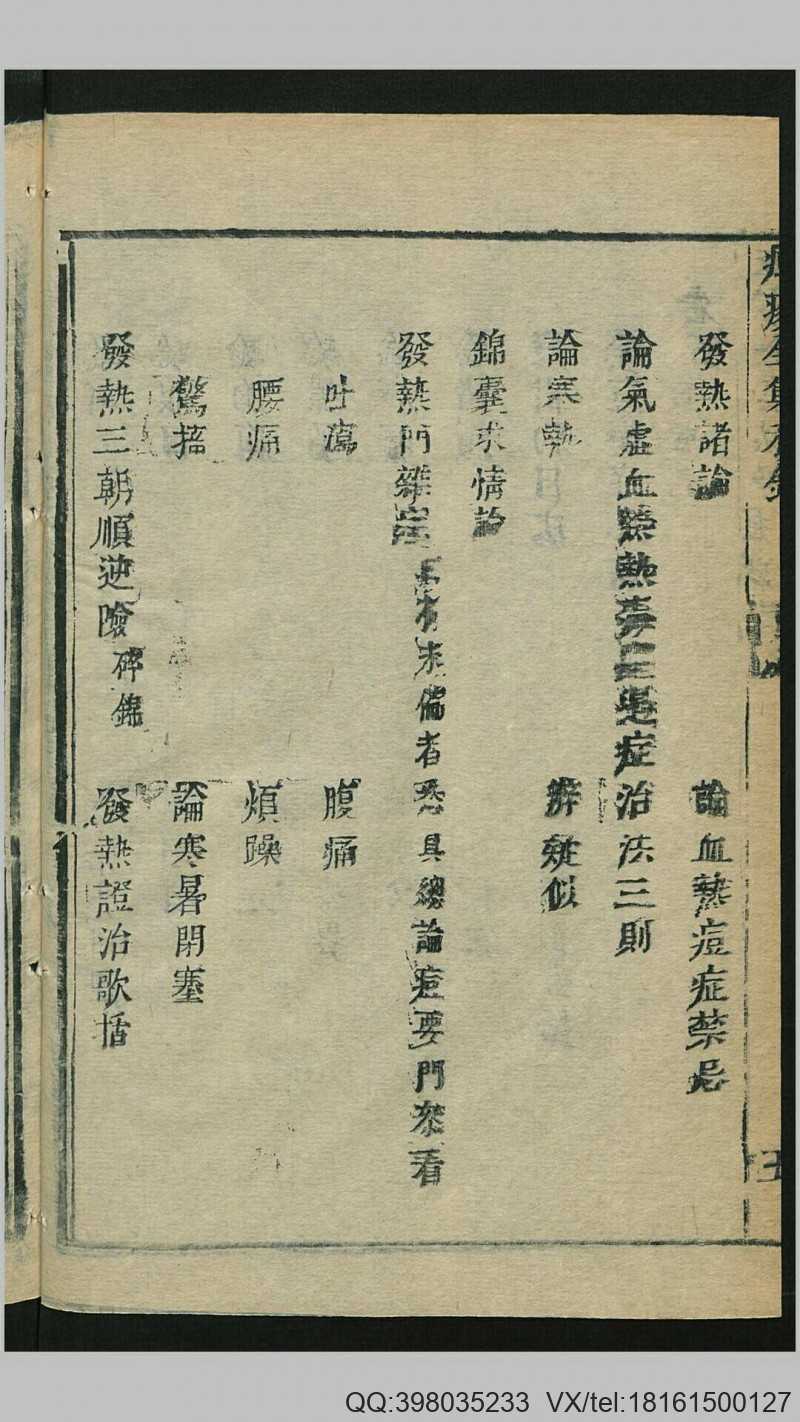 發熱諸論　論血熱痘症禁忌
論氣虛血熱熱毒三症治法三則
論寒熱　辨疑似
錦囊求情論
發熱門雜症 有未備者悉具總論痘要門叅看
吐瀉　腹痛
腰痛　煩躁
驚搐　論寒暑閉塞
發熱三朝順逆險 碎錦　發熱證治歌括
五
QQ:398035233 VX/tel:18161500127